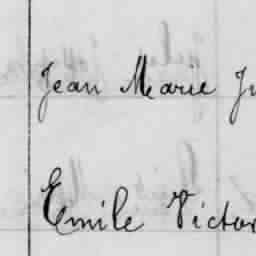 Jean Marie Ju
Emile Victor